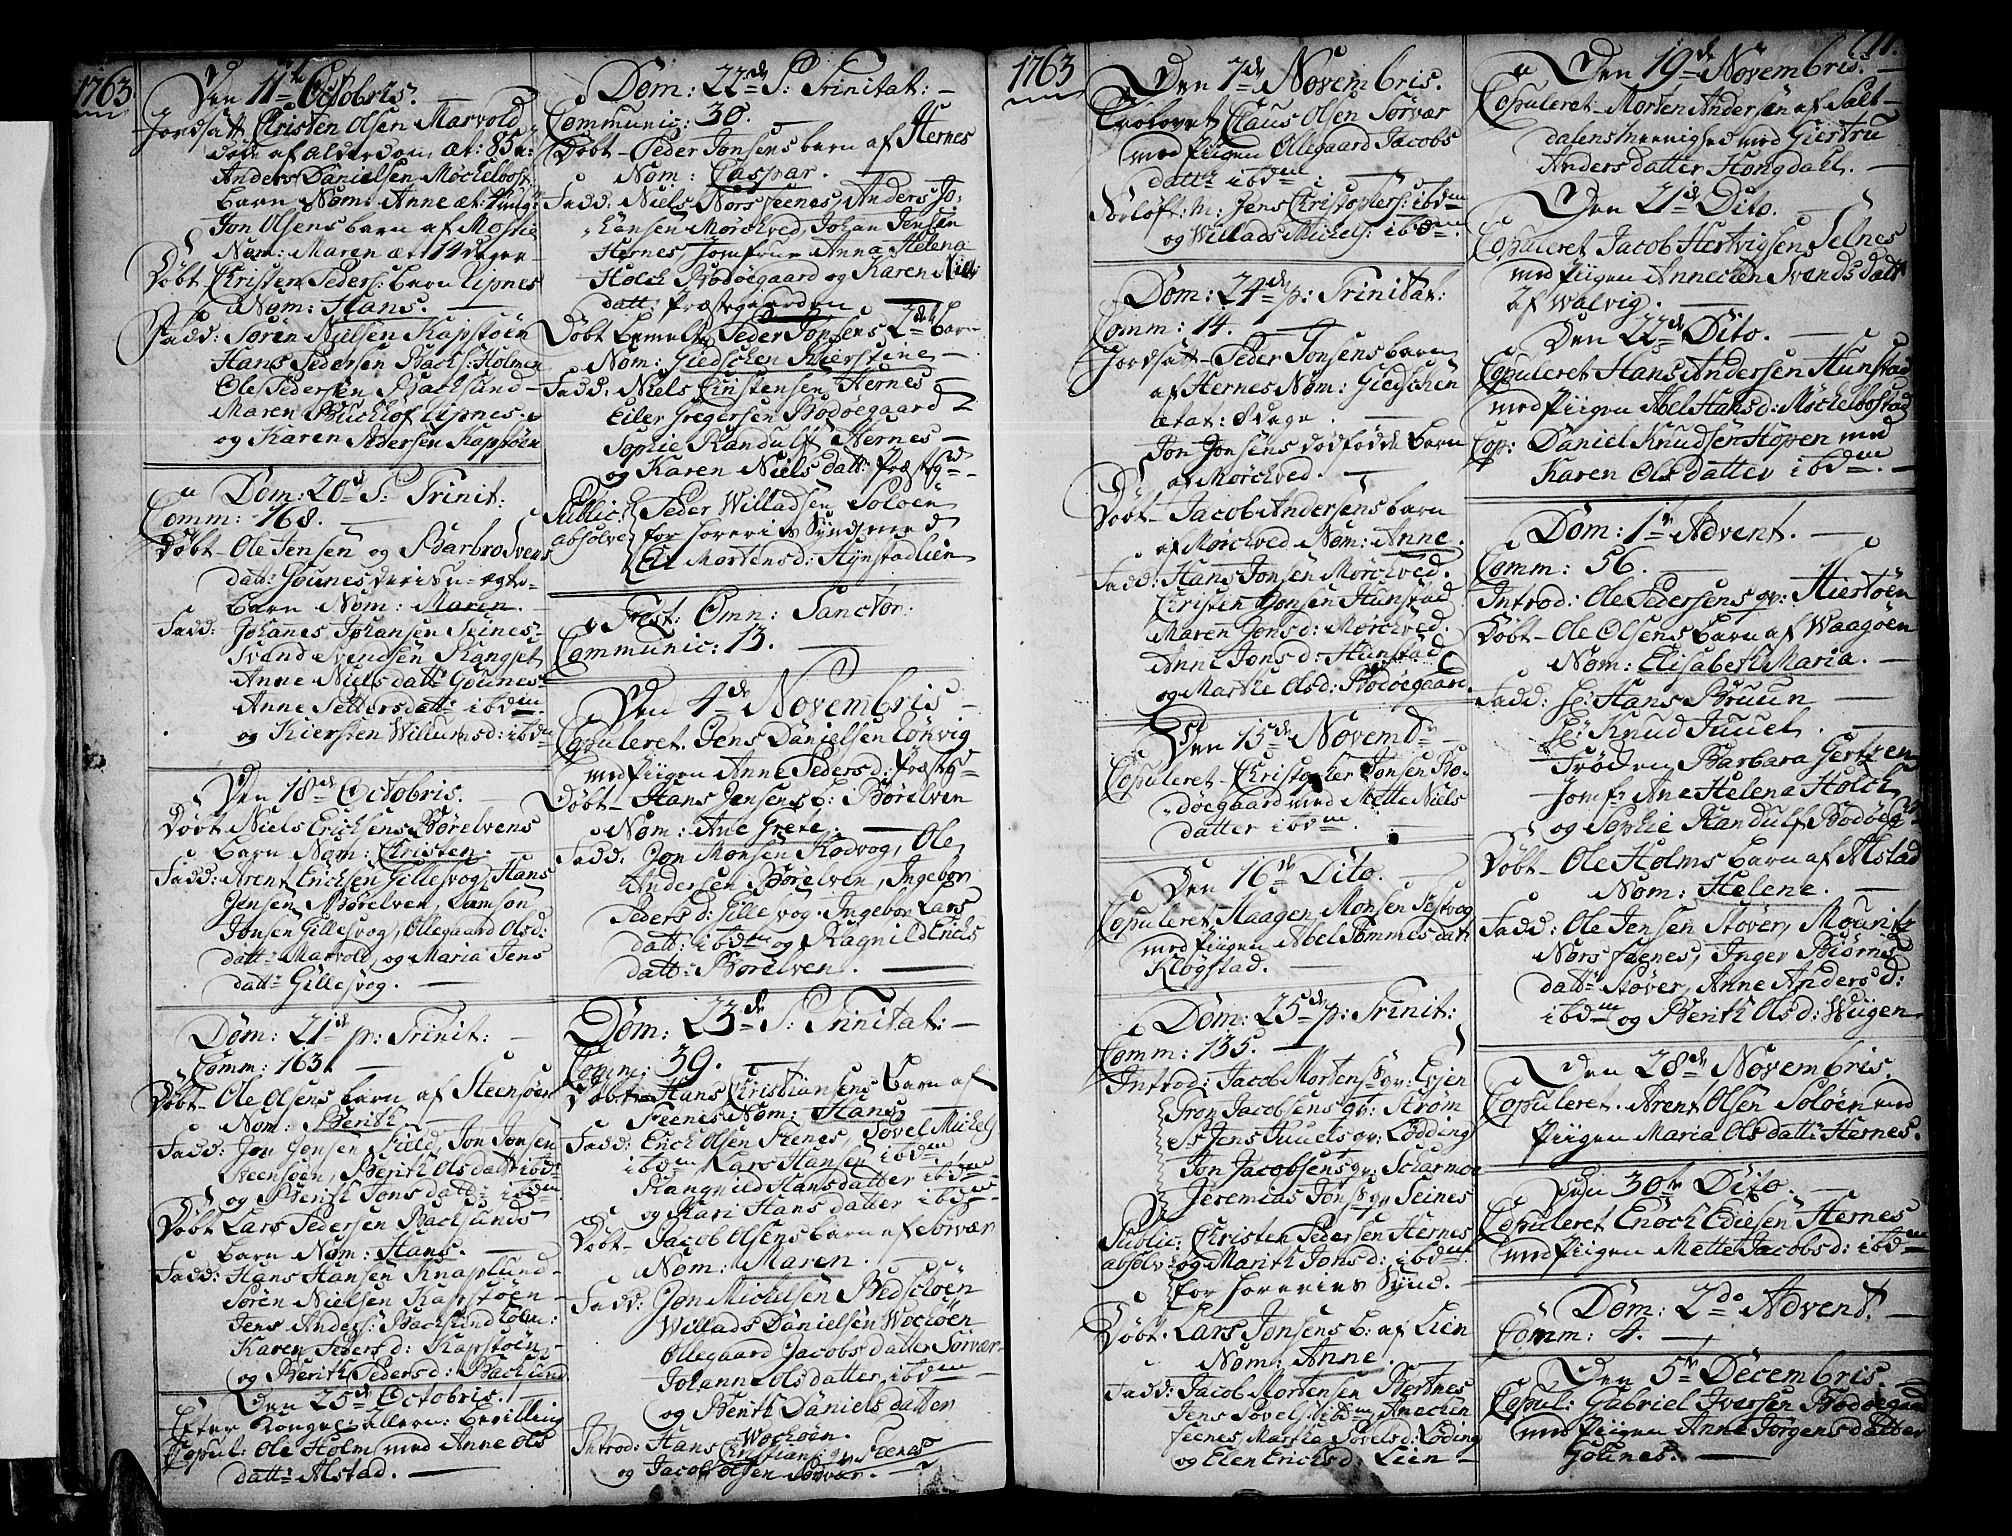 1763.
Den 11te Octobris.
Jordsatt Christen Olsen Marvold
døde af Alderdom æt: 85 a:
Anders Danielsen Møchelbost
barn Nom: Anne æt: 7 uug:
Jon Olsens barn af
Nom: Maren æt 14 dager
Døbt Christen Peders: barn Lipnes
Nom: Hans.
Fadd: Søren Nielsen Kapstøen
Hans Pedersen Bachs: Holmen
Ole Pedersen Bachsund
Maren Buchhof Lipnes
og Karen Pedersen Kapstøen
Dom: 20de P: Trinit:
Comm: 168.
Døbt Ole Jensen og Barbro Svens
datt: Godnes deris u-ægte
barn Nom: Maren.
Fadd: Johanes Johansen Seines
Svend Svendsen
Anne Nielsdatt: Godnes
Anne Pettersdatt: ibdm.
og Kiersten Willumsd: ibdm
Den 18de Octobris.
Døbt Niels Erichsens Børelvens
barn Nom: Christen.
Fadd: Arent Erichsen Gillesvog, Hans
Jensen Børelven, Samson
Jonsen Gillesvog, Ollegaard Olsd:
datt: Marvold, og Maria Jens
datt: Gillesvog.
Dom: 21de p: Trinit:
Comm: 163.
Døbt Ole Olsens barn af Steensøen
Nom: Berith
Fadd: Jon Jonsen Field, Jon Jonsen
Steensøen, Berith Olsdatt: ibd:
og Berith Jonsdatt: ibdm.
Døbt Lars Pedersen Bachsunds
barn Nom: Hans.
Fadd: Hans Hansen Knaplund
Søren Nielsen Kapstøen
Jens Anders: Bachsund holm:
Karen Pedersd: Kapstøen
og Berith Pedersd: Bachsund
Den 25de Octobris.
Efter Kongel: allern: Bevilling
Copul: Ole Holm med Anne Ols
datt: Alstad.
Dom: 22de P: Trinitat:
Communic: 30.
Døbt Peder Jonsens barn af Hernes
Nom: Caspar.
Fadd: Niels Nors Feenes, Anders Jo:
hansen Mørchved, Johan Jensen
Hernes, Jomfrue Anna Helena
Holch Bodøegaard og Karen Niels
datt: Præstegaarden
Døbt bemelte Peder Jonsens 2det barn
Nom: Giedschen Kierstene
Fadd: Niels Christensen Hernes
Eiler Gregersen Bodøegaard
Sophie Randulf Hernes
og Karen Nielsdatt: Præstgd
Public: Peder Willadsen Soløen
absolve: for horeries Synd med
Eli Mortensd: Hynstadlien
Fest: Omn: Sanctor:
Communic: 13.
Den 4de Novembris
Copuleret Jens Danielsen Lønvig
med Piigen Anne Pedersd: Præstg
Døbt Hans Jensens b: Børelven
Nom: Ane Grete.
Fadd: Jon Monsen Kodvog, Ole
Andersen Børelven, Ingebor
Pedersd: Gillesvog, Ingebor Lars
datt: ibdm og Ragnild Eriks
datt: Børelven.
Dom: 23de P: Trinitat:
Comm: 39.
Døbt Hans Christiansens barn af
Feenes Nom: Hans
Fadd: Erich Olsen Feenes, Povel Michels
ibdm Lars Hansen ibdm,
Rangnild Hansdatter ibdm
og Kari Hansdatter ibdm
Døbt Jacob Olsens barn af Sørvær
Nom: Maren.
Fadd: Jon Michelsen Bedschøen
Willads Danielsen Wochøen
Ollegaard Jacobsdatter Sørvær
Johann Olsdatter ibdm
og Berith Danielsdatter
Wochøen.
Introd: Hans Christians: qv: Feenes
og Jacob Olsen Sørvær.
1763
Den 7de Novembris.
Trolovet Claus Olsen Sørvær
med Piigen Ollegaard Jacobs
datt: ibdm:
Forløft: M: Jens Christophers: ibdm
og Willads Michels: ibdm.
Dom: 24de p: Trinitat:
Comm: 14.
Jordsatt Peder Jonsens barn
af Hernes Nom: Giedschen
ætat: 8 dage.
Jon Jonsens dødfødde barn
af Mørchved.
Døbt Jacob Andersens barn
af Mørchved Nom: Anne.
Fadd: Hans Jonsen Mørchved.
Christen Jonsen Hunstad
Maren Jonsd: Mørchved.
Anne Jonsd: Hunstad
og Marthe Olsd: Bodøegaard.
Den 15de Novembr
Copuleret Christopher Jonsen Bo
døegaard med Mette Niels
datter ibdm.
Den 16de Dito.
Copuleret Haagen Monsen Festvog
med Piigen Abel Tommesdatt
Kløgstad.
Dom: 25de p: Trinit:
Comm: 135.
Introd: Jacob Mortens: qv: Evjen
Tron Jacobsens qv: Strøm
Sr Jens Juuels qv: Lødding
Jon Jacobsens qv: Scharmoe
Jeremias Jons: qv: Seines
Public: Christen Pedersen Hernes
absolv: og Marith Jonsd: ibdm
for horeries Synd.
Døbt Lars Jonsens b: af Lien
Nom: Anne.
Fadd: Jacob Mortensen Bertnes
Jens Povels: ibdm Anechen
Feenes, Martha Povelsd: Løding
og Elen Erichsd: Lien
11.
Den 19de Novembris.
Copuleret Morten Andersen af Salt-
dalens Meenighed med Giertru
Andersdatter Hongdahl.
Den 21de Dito.
Copuleret Jacob Hertvigsen Selnes
med Piigen Annechen Svendsdatt
af Walvig.
Den 22de Dito.
Copuleret Hans Andersen Hunstad
med Piigen Abel Hansd: Møchelbostad
Cop: Daniel Knudsen Hopen med
Karen Olsdatter ibdm.
Dom: 1te Advent.
Comm: 56.
Introd: Ole Pedersens qv: Hiertøen
Døbt Ole Olsens barn af Waagøen
Nom: Elisabeth Maria.
Fadd: Hr: Hans Bruun
Hr: Knud Juuel
Frøden Barbara Gertzen
Jomfr Ane Helena Holch
og Sophie Randulf Bodøeg
Døbt Ole Holms barn af Alstad
Nom: Helene.
Fadd: Ole Jensen Støver, Mouritz
Nors Feenes, Inger Biørns
datt: Støver, Anne Andersd:
ibdm og Berith Olsd: Wiigen
Den 28de Novembris.
Copuleret Arent Olsen Soløen med
Piigen Maria Olsdatt: Hernes.
Den 30te Dito.
Copuleret Enoch Ediesen Hernes
med Piigen Mette Jacobsd: ibdm
Dom: 2do Advent.
Comm: 4.
Den 5te Decembris.
Copul: Gabriel Iversen Bodøegaard
med Piigen Anne Jørgensdatter
Godnes.